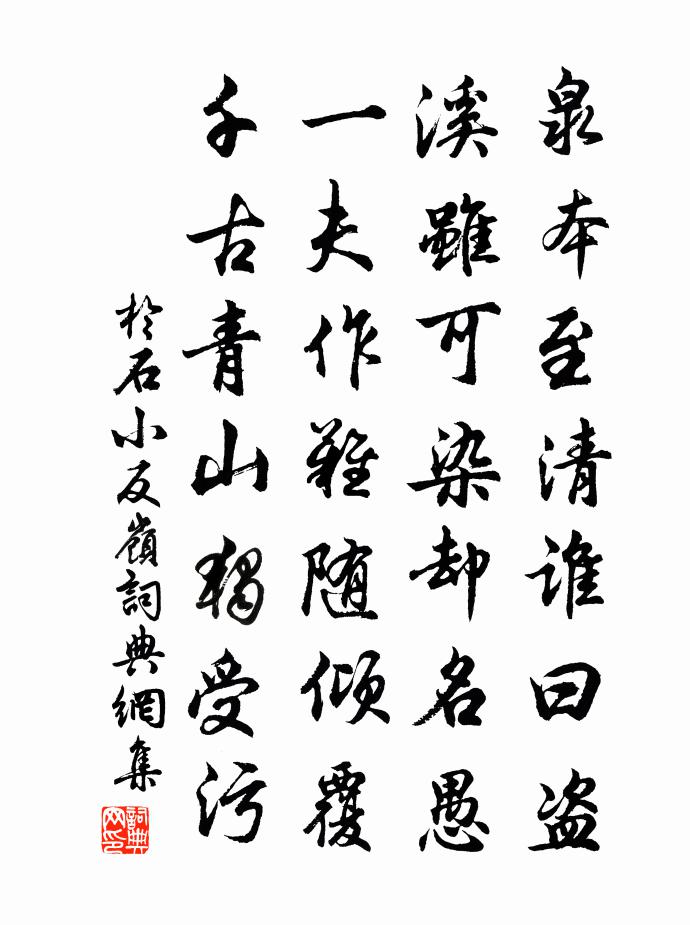 泉本至清谁曰盗
溪雖可染却名愚
一夫作難随傾覆
千古青山獨受污
於石小反嶺詞典網集
詞典网印